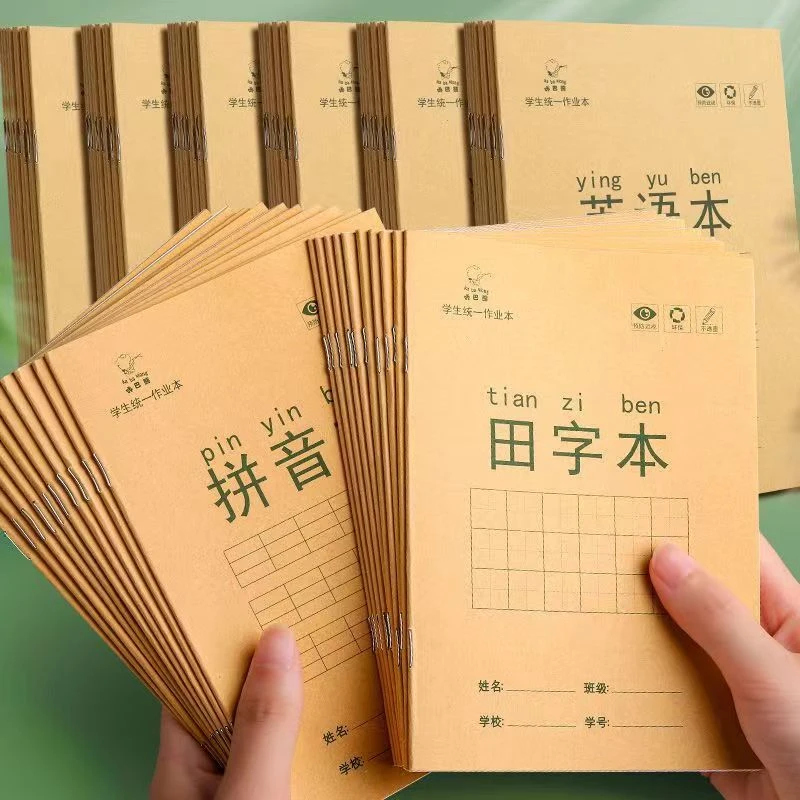 学生统一作业本
学生统一作业本
学生统一作业本
学生统一作业本
学生统一作业本
ying yu ben
英语本
学生统一作业本
pin yin
拼音
姓名:
学校:
ka ba xiong
咔巴熊
学生统一作业本
预防近视
环保
不透墨
tian zi ben
田字本
姓名:
班级:
学校:
学号: